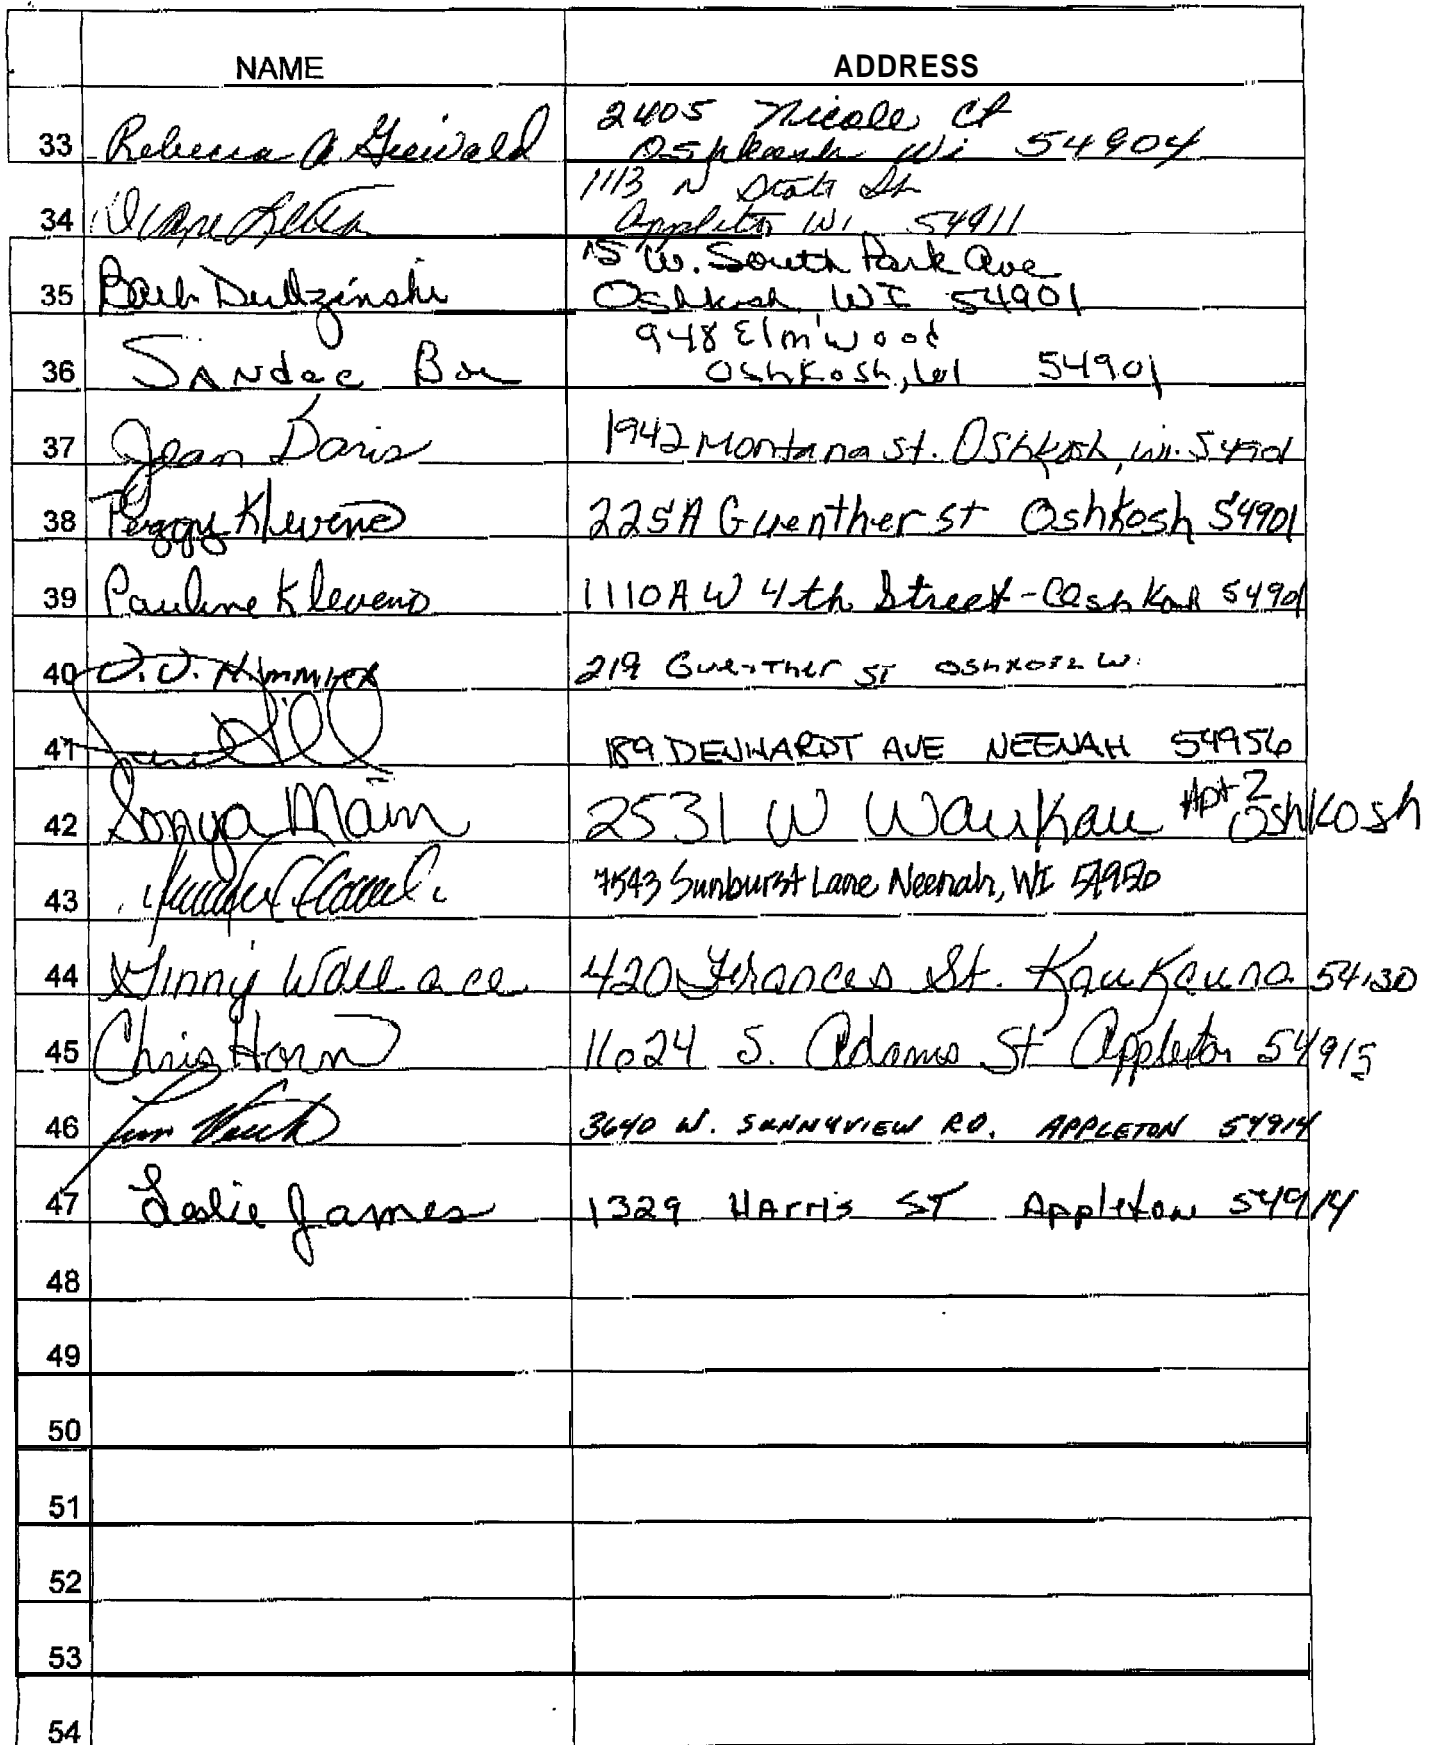 NAME ADDRESS
2405 Nicole Ct
33 Rebecca A Oshkosh Wi 54904
1113 N State St
34 Appleton WI 54911
15 W. South Park Ave
35 Barb Oshkosh WI 54901
948 Elmwood
36 Oshkosh, WI 54901
37 Jean Davis 1942 Montana St. Oshkosh, Wi. 54901
38 Peggy Kleveno 225A Guenther St Oshkosh 54901
39 Pauline Kleveno 1110A W 4th Street - 54901
40 219 Guenther ST
41 189 DENHARDT AVE NEENAH 54956
42 Sonya 2531 W Waukau Apt 2 Oshkosh
43 7543 Sunburst Lane Neenah, WI
44 Ginny Wallace 420 Frances St. Kaukauna 54130
45 Chris Horn 1624 S. Adams St Appleton 54915
46 3640 W. SUNNYVIEW RD. APPLETON 54914
47 Leslie James 1329 Harris ST Appleton 54914
48
49
50
51
52
53
54